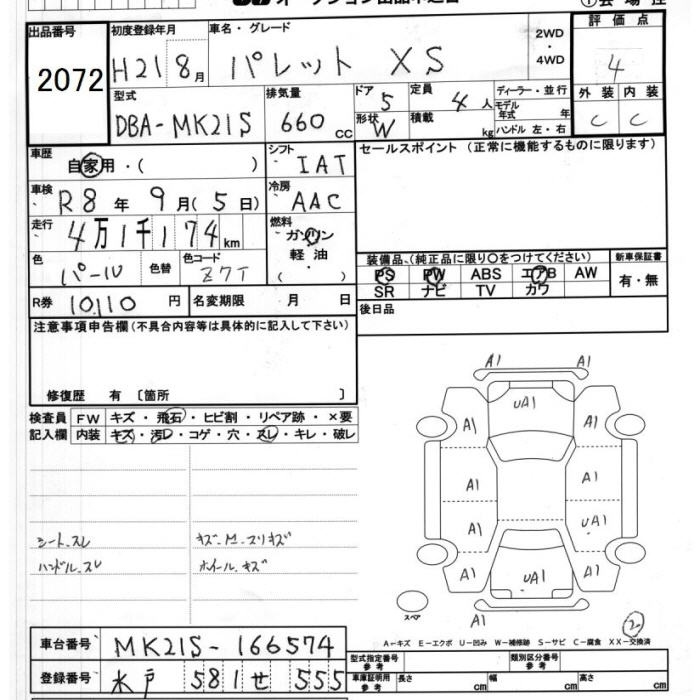 出品番号 初度登録年月 車名・グレード 2WD・4WD 評価点
2072 H21 8月 パレット XS 4
型式 排気量 ドア 5 定員 4人 ディーラー・並行 外装 内装
DBA-MK21S 660cc 形状 W 積載 kg モデル年式 年 ハンドル 左・右 C C
車歴 自家用・( ) シフト IAT セールスポイント (正常に機能するものに限ります)
車検 R8年 9月(5日) 冷房 AAC
走行 4万1千174km 燃料 ガソリン
軽油
・( )
色 パール 色替 色コード Z7T
装備品、(純正品に限り○をつけてください) 新車保証書
PS PW ABS エアB AW 有・無
SR ナビ TV カワ
R券 10,110円 名変期限 月 日 後日品
注意事項申告欄(不具合内容等は具体的に記入して下さい)
修復歴 有 〔箇所 〕
A1 A1
UA1
A1 A1
A1 A1
A1 UA1
A1 UA1 A1
A1
スペア
検査員 FW キズ・飛石・ヒビ割・リペア跡・×要
記入欄 内装 キズ・汚レ・コゲ・穴・スレ・キレ・破レ
シート、スレ
ハンドル、スレ
ホイール、キズ
2
A-キズ E-エクボ U-凹み W-補修跡 S-サビ C-腐食 XX-交換済
車台番号 MK21S-166574
型式指定番号 参考 類別区分番号 参考
登録番号 水戸 581 せ 555
車庫証明用 参考 長さ cm 幅 cm 高さ cm